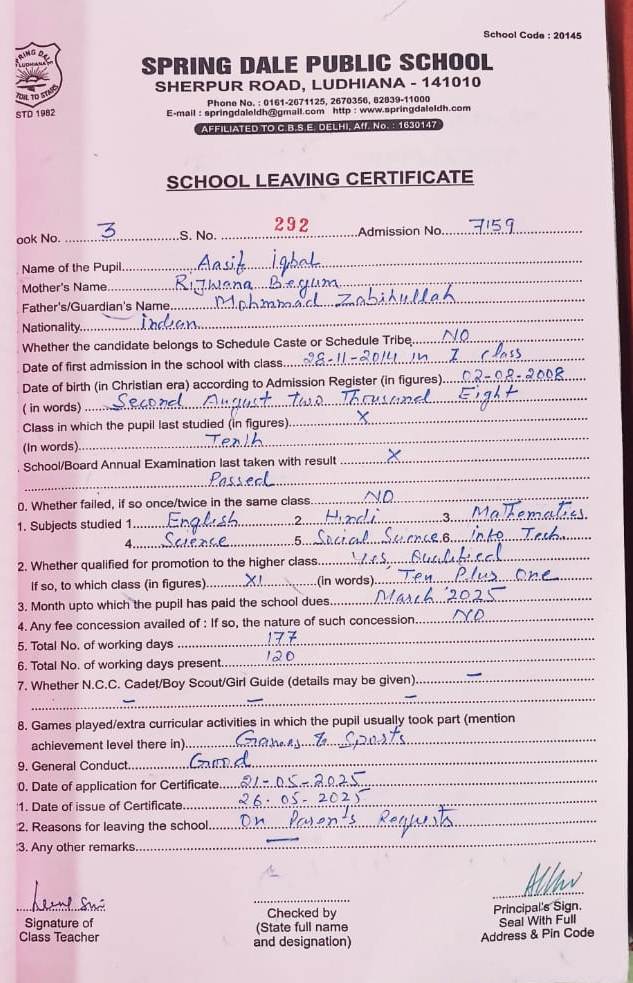 School Code : 20145
SPRING DALE
LUDHIANA
TOIL TO STARS
STD 1982
SPRING DALE PUBLIC SCHOOL
SHERPUR ROAD, LUDHIANA - 141010
Phone No. : 0161-2671125, 2670356, 82839-11000
E-mail : springdaleldh@gmail.com http : www.springdaleldh.com
AFFILIATED TO C.B.S.E. DELHI, Aff. No. : 1630147
SCHOOL LEAVING CERTIFICATE
ook No. 3 S. No. 292 Admission No. 7159
Name of the Pupil Aasif Iqbal
Mother's Name Rijwana Begum
Father's/Guardian's Name Mohmmad Zabihullah
Nationality Indian
Whether the candidate belongs to Schedule Caste or Schedule Tribe NO
Date of first admission in the school with class 28-11-2014 in I class
Date of birth (in Christian era) according to Admission Register (in figures) 02-08-2008
( in words) Second August Two Thousand Eight
Class in which the pupil last studied (in figures) X
(In words) Tenth
. School/Board Annual Examination last taken with result X
Passed
0. Whether failed, if so once/twice in the same class NO
1. Subjects studied 1 English 2 Hindi 3 Mathematics
4 Science 5 Social Science 6 Info Tech
2. Whether qualified for promotion to the higher class Yes, Qualified
If so, to which class (in figures) XI (in words) Ten Plus One
3. Month upto which the pupil has paid the school dues March '2025
4. Any fee concession availed of : If so, the nature of such concession NO
5. Total No. of working days 177
6. Total No. of working days present 120
7. Whether N.C.C. Cadet/Boy Scout/Girl Guide (details may be given) –
– – –
8. Games played/extra curricular activities in which the pupil usually took part (mention
achievement level there in) Games & Sports
9. General Conduct Good
0. Date of application for Certificate 21-05-2025
1. Date of issue of Certificate 26-05-2025
2. Reasons for leaving the school On Parent's Requests
3. Any other remarks —
Signature of
Class Teacher
Checked by
(State full name
and designation)
Principal's Sign.
Seal With Full
Address & Pin Code